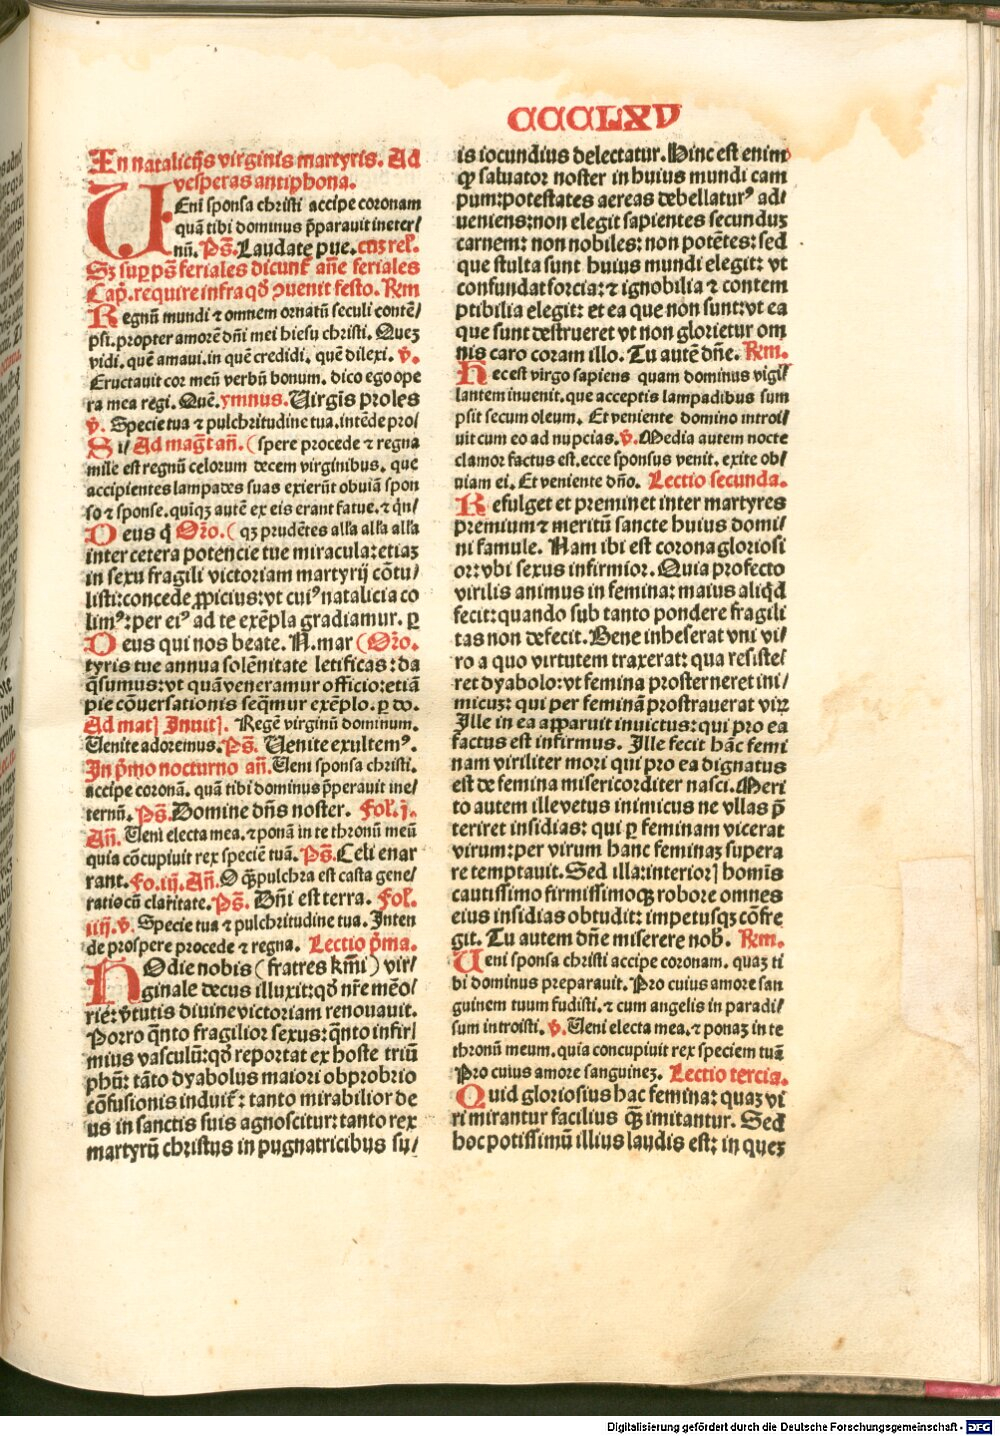 CCCLXV
In natalicijs virginis martyris. Ad
vesperas antiphona.
Ueni sponsa christi accipe coronam
quā tibi dominus p̄parauit in eter/
nū. Ps̄. Laudate pue. cuꝫ relꝰ.
Sꝫ suꝑ ps̄ feriales dicunt̄ an̄e feriales
Cap̄. require infra qđ ꝯuenit festo. Rm̄
Regnū mundi ⁊ omnem ornatū seculi contē/
psi. propter amorē dn̄i mei hiesu christi. Queꝫ
vidi. quē amaui. in quē credidi. quē dilexi. v̄.
Eructauit cor meū verbū bonum. dico ego ope
ra mea regi. Quē. ymnus. Uirgis proles
v̄. Specie tua ⁊ pulchritudine tua. intēde pro/
Si/ Ad maḡt an̄. ( spere procede ⁊ regna
mile est regnū celorum decem virginibus. que
accipientes lampades suas exierūt obuiā spon
so ⁊ sponse. quīqꝫ autē ex eis erant fatue. ⁊ qn̄/
Deus q̄ Or̄o. ( qꝫ prudētes alľa alľa alľa
inter cetera potencie tue miracula: etiaꝫ
in sexu fragili victoriam martyrij cōtu/
listi: concede ꝓpicius: vt cuiꝰ natalicia co
limꝰ: per eiꝰ ad te exēpla gradiamur. ꝑ
Deus qui nos beate. N. mar ( Or̄o.
tyris tue annua solēnitate letificas: da
q̄sumus: vt quā veneramur officio: etiā
pie cōuersationis seq̄mur exēplo. ꝑ do.
Ad matꝭ Inuitꝭ. Regē virginū dominum.
Uenite adoremus. Ps̄. Uenite exultemꝰ.
In p̄mo nocturno an̄. Ueni sponsa christi.
accipe coronā. quā tibi dominus p̄perauit ine/
ternū. Ps̄. Domine dn̄s noster. Fol. j.
An̄. Ueni electa mea. ⁊ ponā in te thronū meū
quia cōcupiuit rex speciē tuā. Ps̄. Celi enar
rant. fo. iij. An̄. O q̄ꝫ pulchra est casta gene/
ratio cū claritate. Ps̄. Dn̄i est terra. Fol.
iiij. v̄. Specie tua ⁊ pulchritudine tua. Inten
de prospere procede ⁊ regna. Lectio p̄ma.
Hodie nobis ( fratres km̄i ) vir/
ginale decus illuxit: qđ nr̄e mēo/
rie: v̄tutis diuine victoriam renouauit.
Porro q̄nto fragilior sexus: q̄nto infir/
mius vasculū: qđ reportat ex hoste triū
phū: tāto dyabolus maiori obprobrio
cōfusionis induit̄: tanto mirabilior de
us in sanctis suis agnoscitur: tanto rex
martyrū christus in pugnatricibus su/
is iocundius delectatur. Hinc est enim
ꝙ saluator noster in huius mundi cam
pum: potestates aereas debellaturꝰ ad/
ueniens: non elegit sapientes secunduꝫ
carnem: non nobiles: non potētes: sed
que stulta sunt huius mundi elegit: vt
confundat forcia: ⁊ ignobilia ⁊ contem
ptibilia elegit: et ea que non sunt: vt ea
que sunt destrueret vt non glorietur om
nis caro coram illo. Tu autē dn̄e. Rm̄.
Hec est virgo sapiens quam dominus vigi/
lantem inuenit. que acceptis lampadibus sum
psit secum oleum. Et veniente domino introi/
uit cum eo ad nupcias. v̄. Media autem nocte
clamor factus est. ecce sponsus venit. exite ob/
uiam ei. Et veniente dn̄o. Lectio secunda.
Refulget et preminet inter martyres
premium ⁊ meritū sancte huius domi/
ni famule. Nam ibi est corona gloriosi
or: vbi sexus infirmior. Quia profecto
virilis animus in femina: maius aliqđ
fecit: quando sub tanto pondere fragili
tas non defecit. Bene inheserat vni vi/
ro a quo virtutem traxerat: qua resiste/
ret dyabolo: vt femina prosterneret ini/
micuꝫ: qui per feminā prostrauerat viꝝ
Ille in ea apparuit inuictus: qui pro ea
factus est infirmus. Ille fecit hāc femi
nam viriliter mori qui pro ea dignatus
est de femina misericorditer nasci. Meri
to autem ille vetus inimicus ne vllas p̄
teriret insidias: qui ꝑ feminam vicerat
virum: per virum hanc feminaꝫ supera
re temptauit. Sed illa: interiorꝭ homīs
cautissimo firmissimoqꝫ robore omnes
eius insidias obtudit: impetusqꝫ cōfre
git. Tu autem dn̄e miserere nob̄. Rm̄.
Ueni sponsa christi accipe coronam. quaꝫ ti
bi dominus preparauit. Pro cuius amore san
guinem tuum fudisti. ⁊ cum angelis in paradi/
sum introisti. v̄. Ueni electa mea. ⁊ ponaꝫ in te
thronū meum. quia concupiuit rex speciem tuā
Pro cuius amore sanguineꝫ. Lectio tercia.
Quid gloriosius hac femina: quaꝫ vi
ri mirantur facilius q̄ꝫ imitantur. Sed
hoc potissimū illius laudis est: in queꝫ
Digitalisierung gefördert durch die Deutsche Forschungsgemeinschaft - DFG